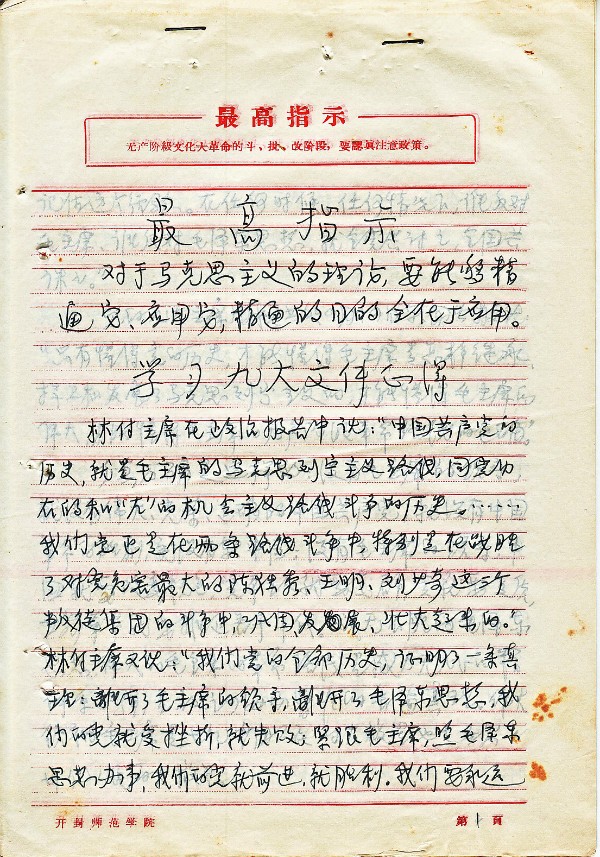 最高指示
无产阶級文化大革命的斗、批、改阶段，要認真注意政策。
最高指示
对于马克思主义的理论，要能够精
通它、应用它，精通的目的全在于应用。
学习九大文件心得
林付主席在政治报告中说：“中国共产党的
历史，就是毛主席的马克思列宁主义路线，同党内
右的和“左”的机会主义路线斗争的历史。……
我们党正是在两条路线斗争中，特别是在战胜
了对党危害最大的陈独秀、王明、刘少奇这三个
叛徒集团的斗争中，巩固、发展、壮大起来的。”
林付主席又说：“我们党的全部历史，证明了一条真
理：离开了毛主席的领导，离开了毛泽东思想，我
们的党就受挫折，就失败；紧跟毛主席，照毛泽东
思想办事，我们的党就前进，就胜利。我们要永远
开封师范学院
第1頁